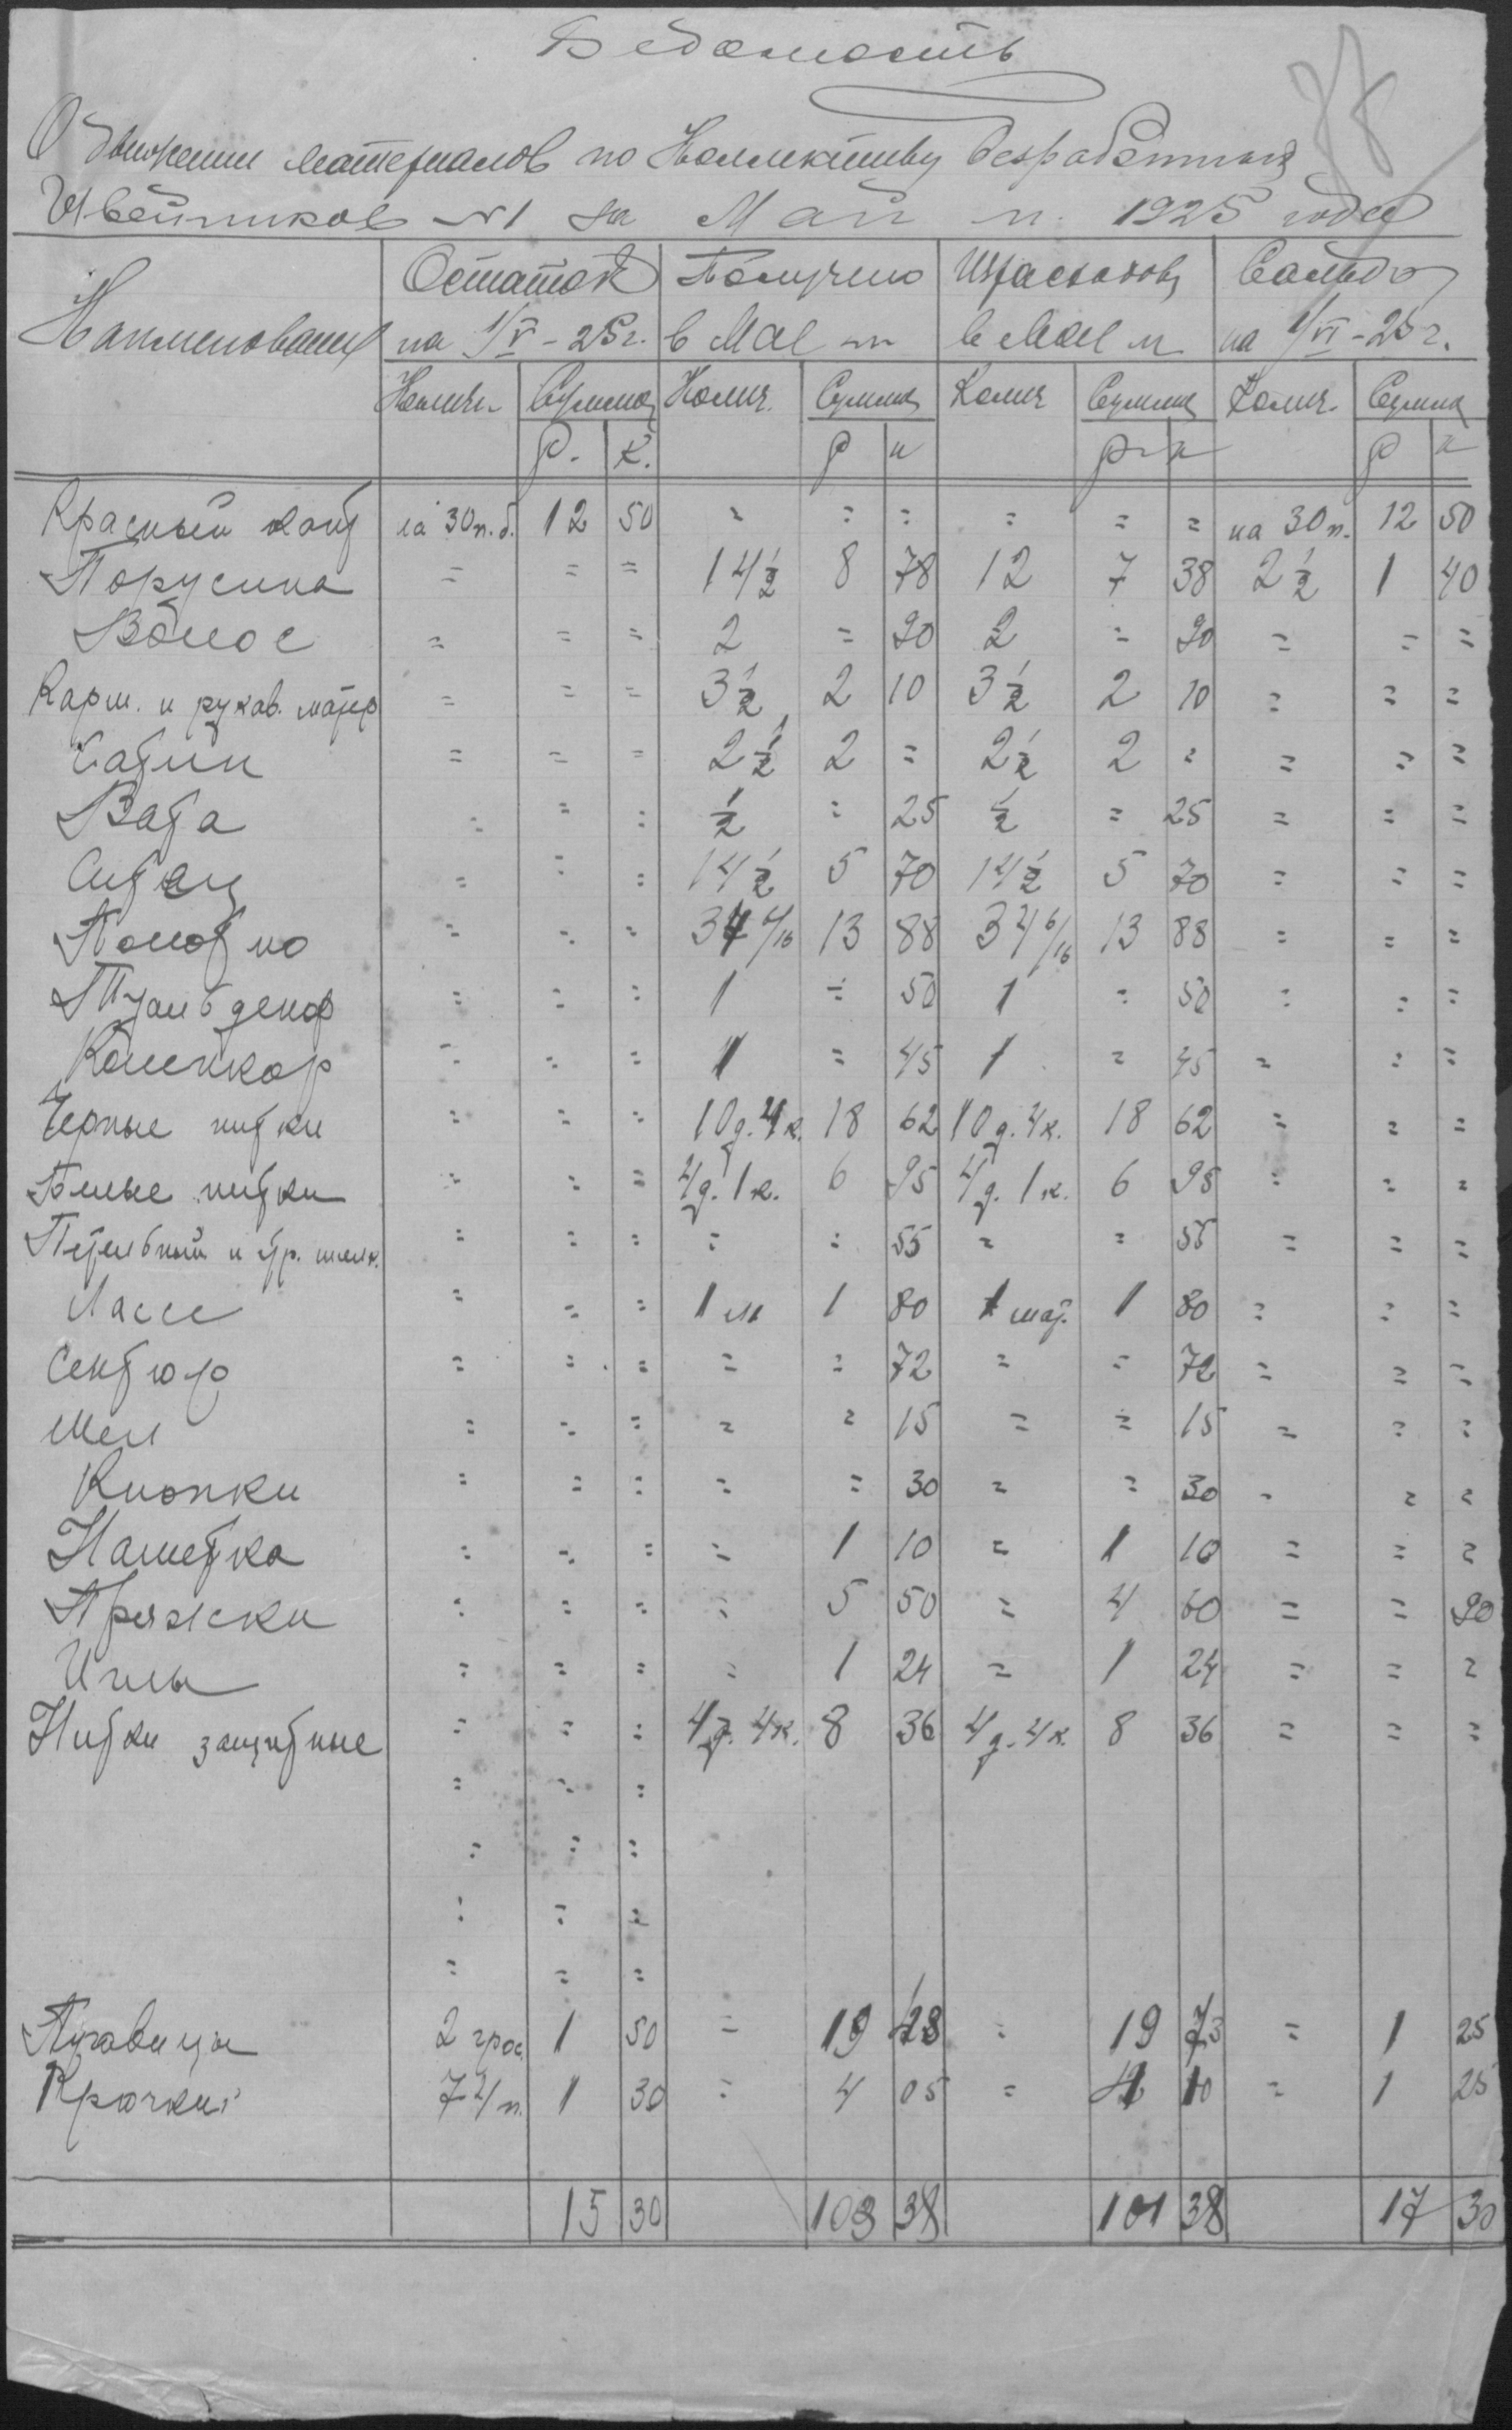 Ведомость
О движении материалов по Коллективу безработных
Швейников №1 за Май м. 1925 года
Наименование Остаток Получено Израсходов Сальдо
на 1/V - 25 г. в Мае м в Мае м на 1/VI - 25 г.
Колич. Сумма Колич. Сумма Колич Сумма Колич. Сумма
Р. К. Р к Р к Р к
Красный кант на 30 п. б. 12 50 = = = = = = на 30 п. 12 50
Парусина = = = 14 1/2 8 78 12 7 38 2 1/2 1 40
Волос = = = 2 = 90 2 = 90 = = =
Карм. и рукав. матер = = = 3 1/2 2 10 3 1/2 2 10 = = =
Сатин = = = 2 1/2 2 = 2 1/2 2 = = = =
Вата = = = 1/2 = 25 1/2 = 25 = = =
Ситец = = = 14 1/2 5 70 14 1/2 5 70 = = =
Полотно = = = 34 6/16 13 88 34 6/16 13 88 = = =
Туальденор = = = 1 = 50 1 = 50 = = =
Коленкор = = = 1 = 45 1 = 45 = = =
Черные нитки = = = 10 д. 4 к. 18 62 10 д. 4 к. 18 62 = = =
Белые нитки = = = 4 д. 1 к. 6 95 4 д. 1 к. 6 95 = = =
Петельный и др. шелк. = = = = = 55 = = 55 = = =
Лассе = = = 1 м 1 80 1 мот. 1 80 = = =
Сентюр = = = = = 72 = = 72 = = =
Мел = = = = = 15 = = 15 = = =
Кнопки = = = = = 30 = = 30 = = =
Наметка = = = = 1 10 = 1 10 = = =
Пряжки = = = = 5 50 = 4 60 = = 90
Иглы = = = = 1 24 = 1 24 = = =
Нитки защитные = = = 4 д. 4 к. 8 36 4 д. 4 к. 8 36 = = =
= = =
= = =
= = =
= = =
Пуговицы 2 грос 1 50 = 19 = 19 73 = 1 25
Крючки 74 п. 1 30 = 4 05 = 4 10 = 1 25
15 30 103 38 101 38 17 30